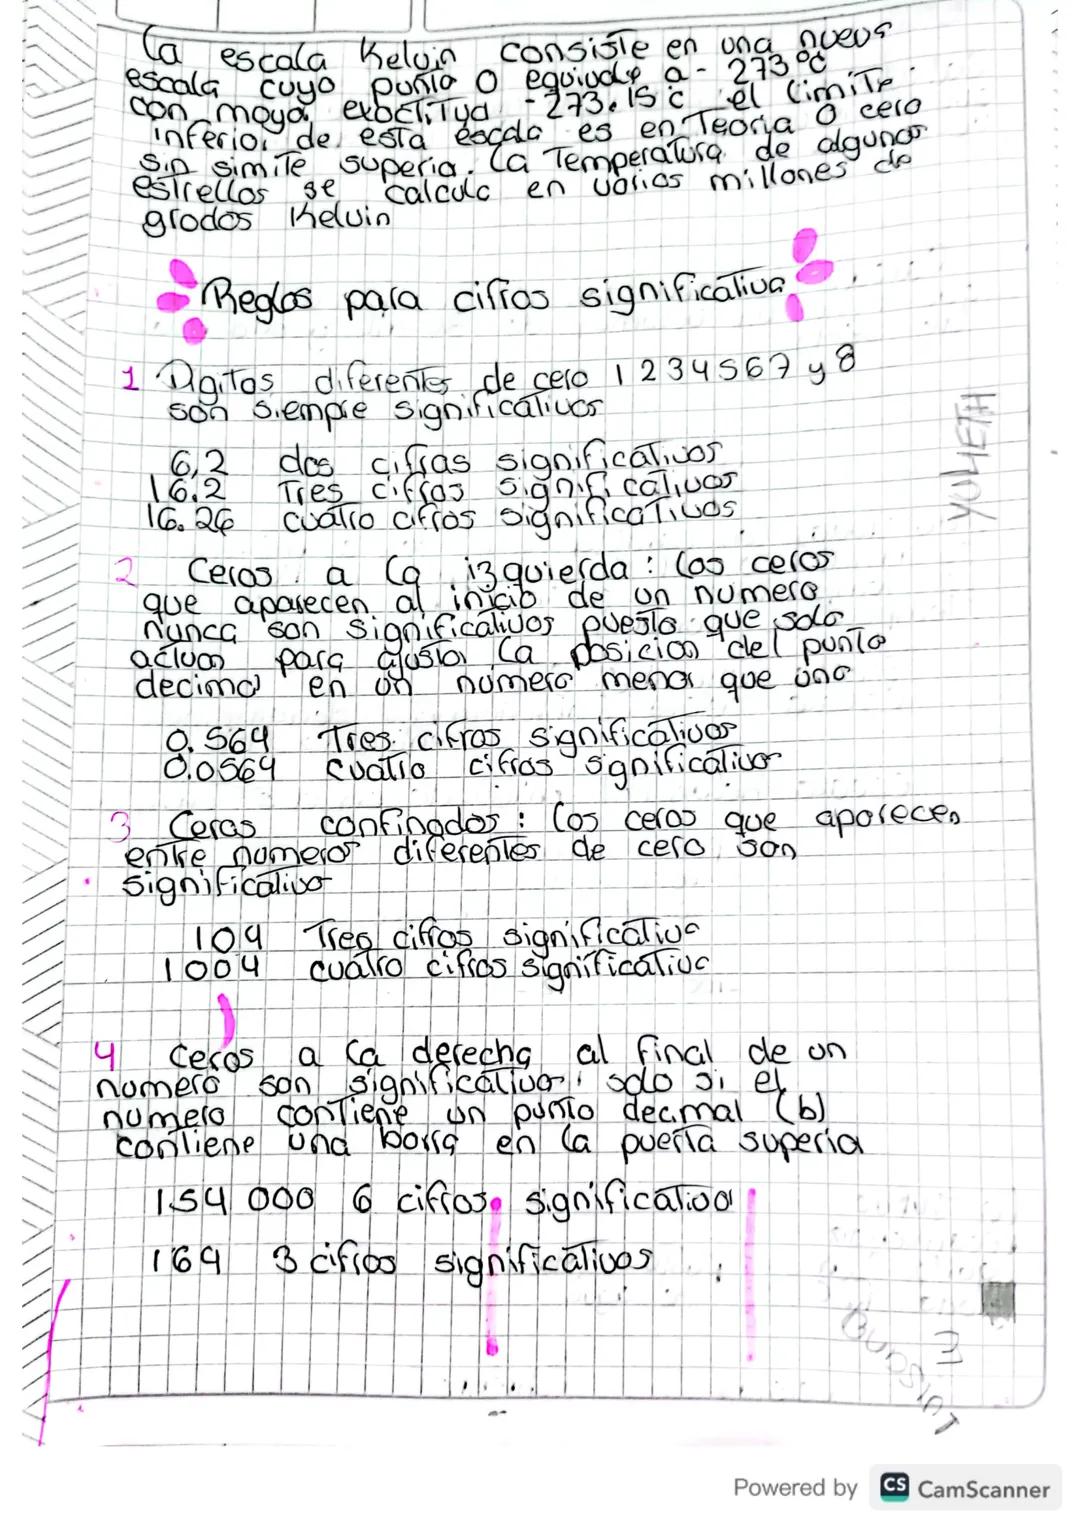 La escala Kelvin consiste en una nueva
escala cuyo punto 0 equivale a - 273 °C
con mayor exactitud - 273.15 c el limite
inferior de esta escala es en Teoria 0 cero
sin simite superia. La Temperatura de algunas
estrellas se calcula en varios millones de
grados Kelvin
Reglas para cifras significativa
1 Digitos diferentes de cero 1 2 3 4 5 6 7 y 8
son siempre significativos
6,2 dos cifras significativos
16.2 Tres cifras significativos
16.26 cuatro cifras significativas
2 Ceros a la izquierda : los ceros
que aparecen al inicio de un numero
nunca son significativos puesto que solo
actuan para ajustar la posicion del punto
decimal en un numero menor que uno
0.564 Tres cifras significativas
0.0564 cuatro cifras significativas
3 Ceros confinados : los ceros que aparecen
entre numeros diferentes de cero son
significativo
104 Tres cifras significativa
1004 cuatro cifras significativa
4 Ceros a la derecha al final de un
numero son significativos solo si el
numero contiene un punto decimal (b)
contiene una borra en la puerta superia
154 000 6 cifras significativa
164 3 cifras significativas
YULIETH
3
Powered by CS CamScanner